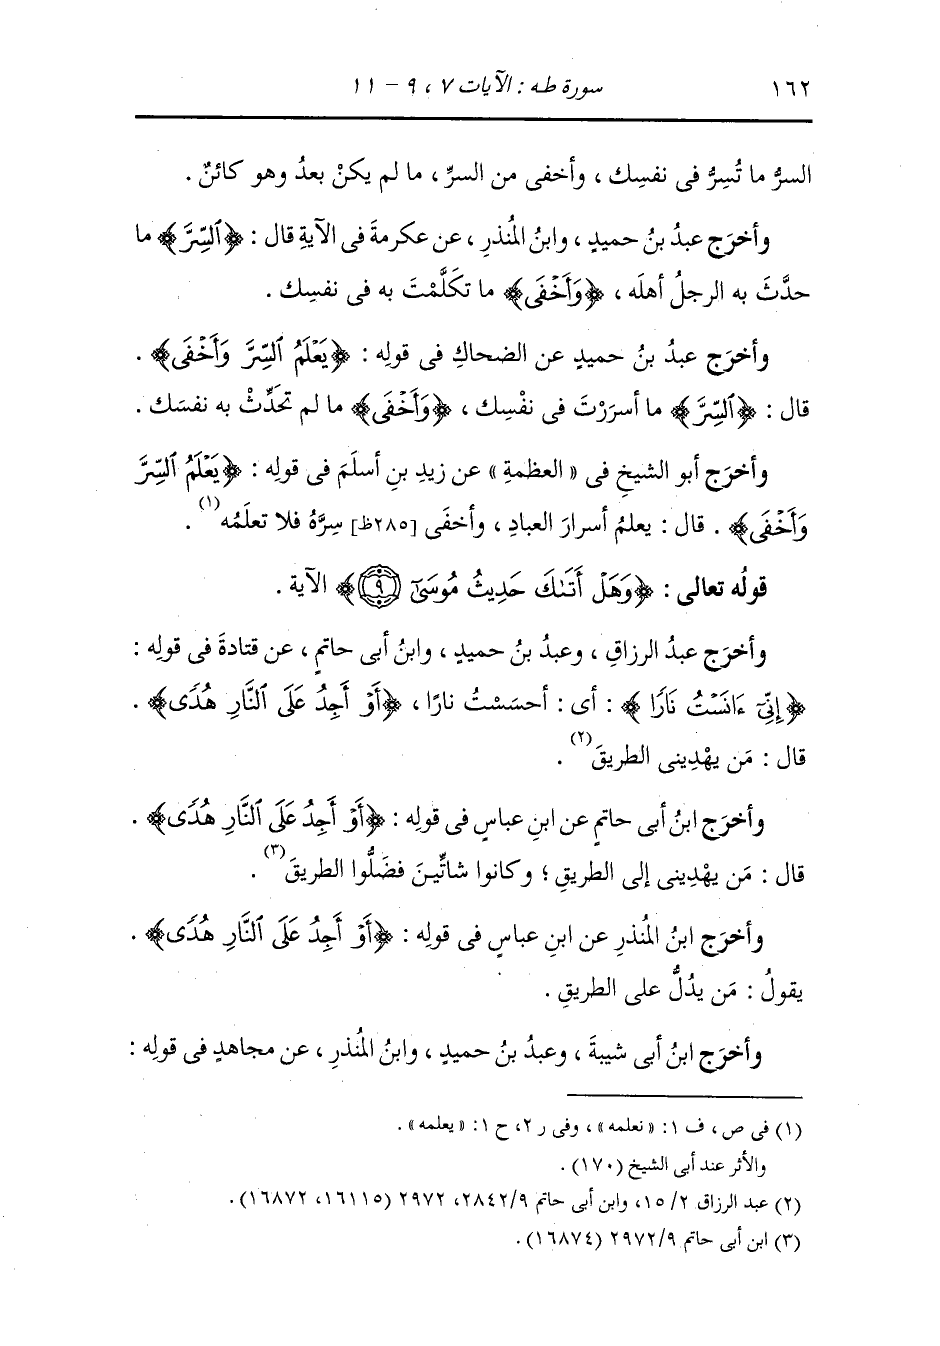 ١٦٢ سورة طه : الآيات ٧ ، ٩ - ١١
السرُّ ما تُسِرُّ فى نفسِك ، وأخفى من السرِّ ، ما لم يكنْ بعدُ وهو كائنٌ .
وأخرَج عبدُ بنُ حميدٍ ، وابنُ المُنذرِ ، عن عكرمةَ فى الآيةِ قال : ﴿ٱلسِّرَّ﴾ ما
حدَّثَ به الرجلُ أهلَه ، ﴿وَأَخْفَى﴾ ما تكَلَّمْتَ به فى نفسِك .
وأخرَج عبدُ بنُ حميدٍ عن الضحاكِ فى قولِه : ﴿يَعْلَمُ ٱلسِّرَّ وَأَخْفَى﴾ .
قال : ﴿ٱلسِّرَّ﴾ ما أسرَرْتَ فى نفْسِك ، ﴿وَأَخْفَى﴾ ما لم تحَدِّثْ به نفسَك .
وأخرَج أبو الشيخِ فى « العظمةِ » عن زيدِ بنِ أسلَمَ فى قولِه : ﴿يَعْلَمُ ٱلسِّرَّ
وَأَخْفَى﴾ . قال : يعلمُ أسرارَ العبادِ ، وأخفَى [٢٨٥ظ] سِرَّهُ فلا تعلَمُه(١) .
قولُه تعالى : ﴿وَهَلْ أَتَىٰكَ حَدِيثُ مُوسَىٰٓ ٩﴾ الآية .
وأخرَج عبدُ الرزاقِ ، وعبدُ بنُ حميدٍ ، وابنُ أبى حاتمٍ ، عن قتادةَ فى قولِه :
﴿إِنِّىٓ ءَانَسْتُ نَارًا ﴾ : أى : أحسَسْتُ نارًا ، ﴿أَوْ أَجِدُ عَلَى ٱلنَّارِ هُدًى﴾ .
قال : مَن يهْدِينى الطريقَ(٢) .
وأخرَج ابنُ أبى حاتمٍ عن ابنِ عباسٍ فى قولِه : ﴿أَوْ أَجِدُ عَلَى ٱلنَّارِ هُدًى﴾ .
قال : مَن يهْدِينى إلى الطريقِ ؛ وكانوا شاتِّينَ فضَلُّوا الطريقَ(٣) .
وأخرَج ابنُ المُنذرِ عن ابنِ عباسٍ فى قولِه : ﴿أَوْ أَجِدُ عَلَى ٱلنَّارِ هُدًى﴾ .
يقولُ : مَن يدُلُّ على الطريقِ .
وأخرَج ابنُ أبى شيبةَ ، وعبدُ بنُ حميدٍ ، وابنُ المُنذرِ ، عن مجاهدٍ فى قولِه :
(١) فى ص ، ف ١: «نعلمه» ، وفى ر ٢، ح ١: «يعلمه» .
والأثر عند أبى الشيخ (١٧٠) .
(٢) عبد الرزاق ٢/ ١٥، وابن أبى حاتم ٩/ ٢٨٤٢، ٢٩٧٢ (١٦١١٥، ١٦٨٧٢) .
(٣) ابن أبى حاتم ٩/ ٢٩٧٢ (١٦٨٧٤) .